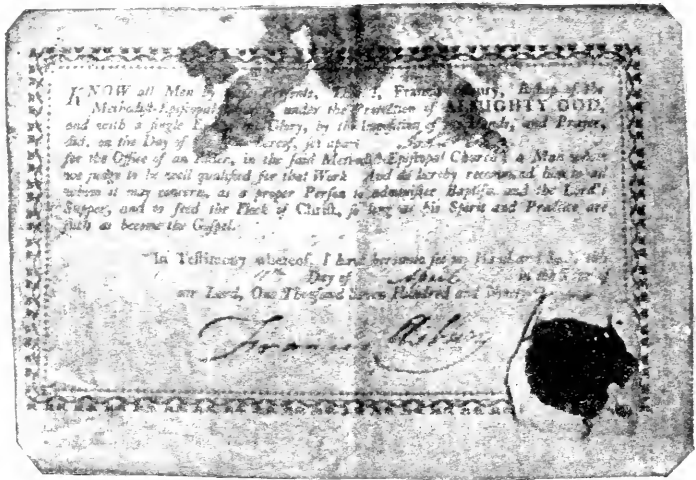 KNOW all Men by Presents, I, Francis Asbury, Bishop of the
Methodist-Episcopal under the Protection of ALMIGHTY GOD,
and with a single Glory, by the Imposition of my Hands, and Prayer,
did, on the Day of hereof, set apart
for the Office of an Elder, in the said Methodist-Episcopal Church; a Man whom
we judge to be well qualified for that Work And do hereby recommend him to all
whom it may concern, as a proper Person to administer Baptism and the Lord's
Supper, and to feed the Flock of Christ, so long as his Spirit and Practice are
such as become the Gospel.
In Testimony whereof, I have hereunto set my Hand and Seal, this
Day of in the Year of
our Lord, One Thousand Seven Hundred and Ninety
Francis Asbury